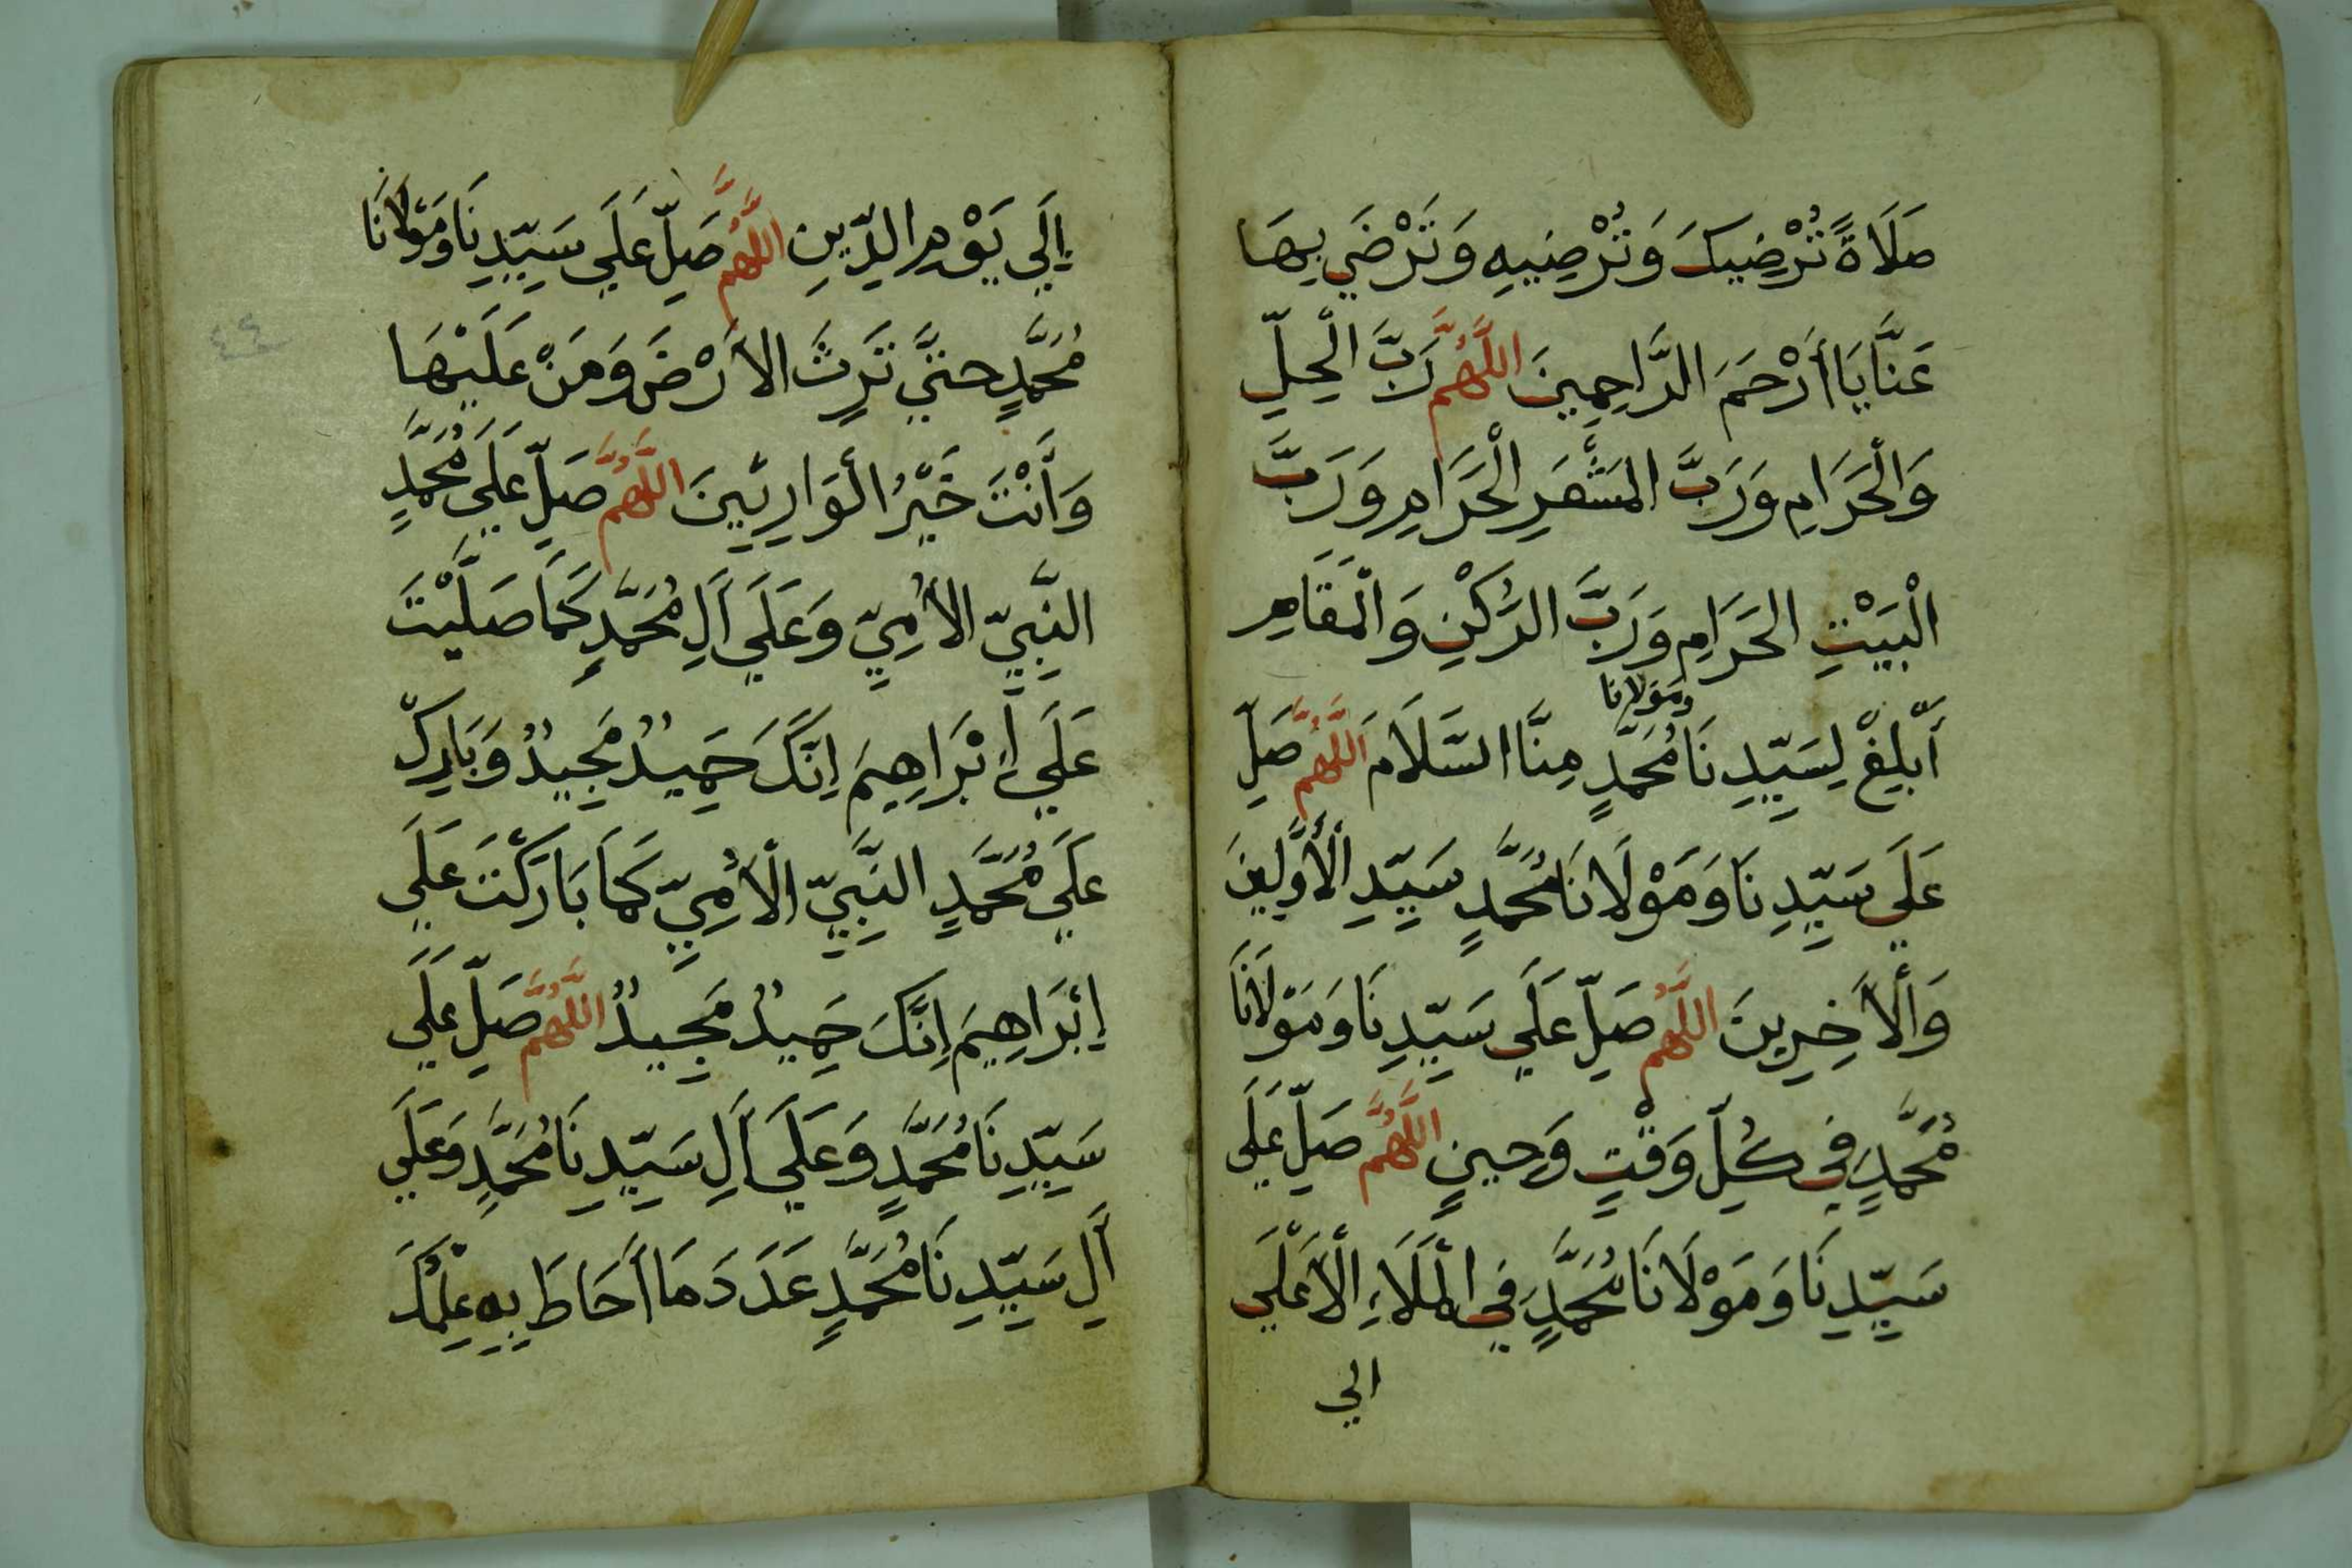 صَلَاةً تُرْضِيكَ وَتُرْضِيهِ وَتَرْضَي بِهَا
عَنَّا يَا أَرْحَمَ الرَّاحِمِينَ اللَّهُمَّ رَبَّ الْحِلِّ
وَالْحَرَامِ وَرَبَّ المَشْعَرِ الْحَرَامِ وَرَبَّ
الْبَيْتِ الحَرَامِ وَرَبَّ الرُّكْنِ وَالْمَقَامِ
ومَوْلانا
أَبْلِغْ لِسَيِّدِنَا مُحَمَّدٍ مِنَّا السَّلَامَ اللَّهُمَّ صَلِّ
عَلَي سَيِّدِنَا وَمَوْلَانَا مُحَمَّدٍ سَيِّدِ الْأَوَّلِينَ
وَالْأَخِرِينَ اللَّهُمَّ صَلِّ عَلَي سَيِّدِنَا وَمَوْلَانَا
مُحَمَّدٍ فِي كُلِّ وَقْتٍ وَحِينٍ اللَّهُمَّ صَلِّ عَلَي
سَيِّدِنَا وَمَوْلَانَا مُحَمَّدٍ فِي الْمَلَاءِ الْأَعْلَي
الي
إِلَي يَوْمِ الدِّينِ اللَّهُمَّ صَلِّ عَلَي سَيِّدِنَا وَمَوْلَانَا
مُحَمَّدٍ حتيَّ تَرِثَ الأَرْضَ وَمَنْ عَلَيْهَا
وَأَنْتَ خَيْرُ الْوَارِثِينَ اللَّهُمَّ صَلِّ عَلَي مُحَمَّدٍ
النَّبِيِّ الأُمِيِّ وَعَلَي أَلِ مُحَمَّدٍ كَمَا صَلَّيْتَ
عَلَي إِبْرَاهِيمَ اِنَّكَ حَمِيدٌ مَجِيدٌ وَبَارِكْ
عَلَي مُحَمَّدٍ النَّبِيِّ الْأُمِيِّ كَمَا بَارَكْتَ عَلَي
إِبْرَاهِيمَ إِنَّكَ حَمِيدٌ مَجِيدٌ اللَّهُمَّ صَلِّ عَلَي
سَيِّدِنَا مُحَمَّدٍ وَعَلَي أَلِ سَيِّدِنَا مُحَمَّدٍ وَعَلَي
أَلِ سَيِّدِنَا مُحَمَّدٍ عَدَدَ مَا أَحَاطَ بِهِ عِلْمُكَ
٤٤